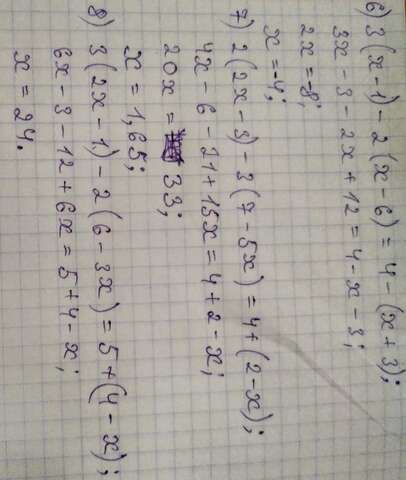 6) 3(x-1)-2(x-6)=4-(x+3);
3x-3-2x+12=4-x-3;
2x=-8;
x=-4;
7) 2(2x-3)-3(7-5x)=4+(2-x);
4x-6-21+15x=4+2-x;
20x= 33;
x=1,65;
8) 3(2x-1)-2(6-3x)=5+(4-x);
6x-3-12+6x=5+4-x;
x=24.